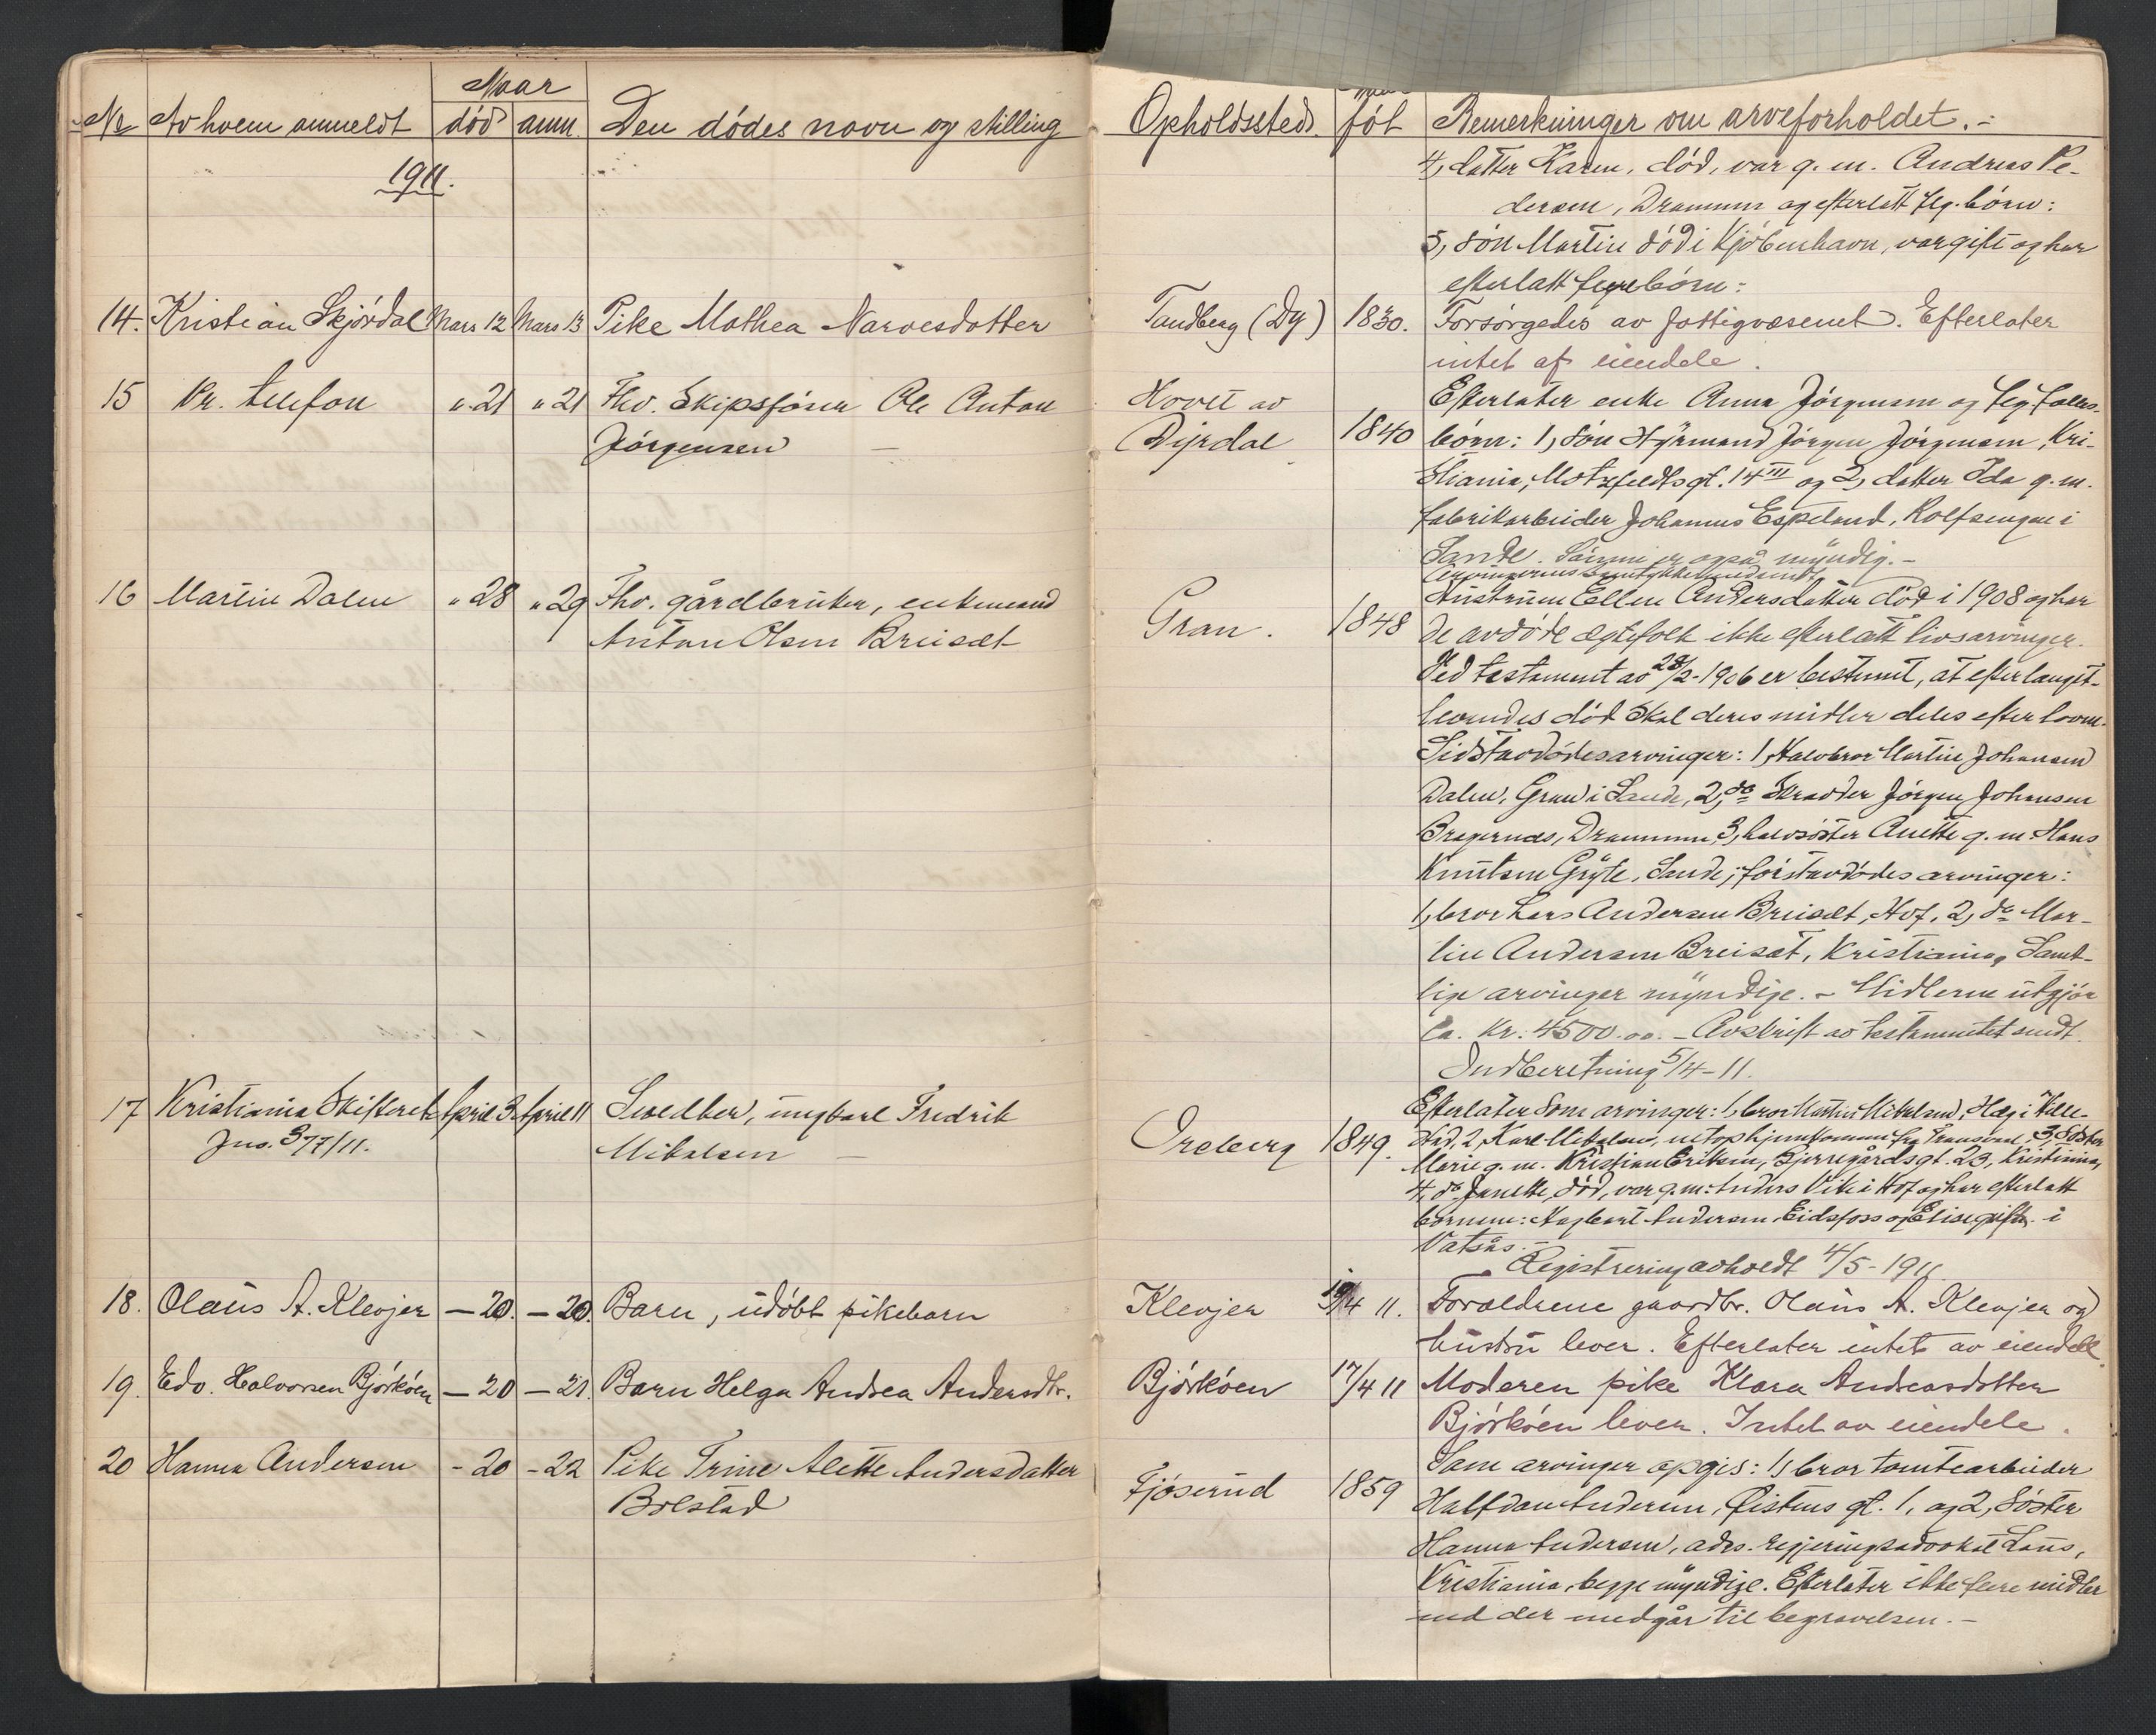 Naar
Nr Av hvem anmeldt død anm. Den dødes navn og stilling
1911.
14. Kristian Skjørdal Mars 12 Mars 13 Pike Mathea Narvesdatter
15 Pr. telefon " 21 " 21 Fhv. Skipsfører Ole Anton
Jørgensen —
16 Martin Dalen " 28 " 29 Fhv. gårdbruker, enkemand
Anton Olsen Breisæt
17 Kristiania Skifteret April 3 April 11 ungkarl Fredrik
Jno. 377/11. Mikalsen —
18. Olaus A. Klevjer — 20. — 20. Barn, udøbt pikebarn
19. Edv. Halvorsen Bjørkøen — 20 — 21. Barn Helga Andrea Andersdtr.
20 Hanna Andersen - 20 - 22 Pike Trine Alette Andersdatter
Bolstad
Opholdssted. føt Bemerkninger om arveforholdet.-
4, datter Karen, død, var g. m. Andreas Pe-
dersen, Drammen og efterlatt flg. børn:
5, søn Martin død i Kjøbenhavn, var gift og har
efterlatt børn:
Tandberg (Dy) 1830. Forsørgedes av fattigvæsenet. Efterlater
intet af eiendele.
Hovet av Efterlater enke Anna Jørgensen og flg. fælles-
Dyrdal 1840 børn: 1, søn Styrmand Jørgen Jørgensen, Kri-
stiania, Motzfeldtsgt. 14 III og 2, datter Ida g. m.
fabrikarbeider Johannes Espeland, Rolfsengen i
Sande. Sønnen er også myndig. -
Gran. 1848 Hustruen Ellen Andersdatter død i 1908 og har
de avdøde ægtefolk ikke efterlatt livsarvinger.
Ved testament av 28/2-1906 er bestemt, at efter længst-
levendes død skal deres midler deles efter loven.
Sidstavdødes arvinger: 1, Halvbror Martin Johansen
Dalen, Gran i Sande, 2, do Skrædder Jørgen Johansen
Bragernes, Drammen, 3, halvsøster Anette g. m. Hans
Knutsen Gryte, Sande; førstavdødes arvinger:
1, bror Lars Andersen Breisæt, Hof, 2, do Mar-
tin Andersen Breisæt, Kristiania, Samt-
lige arvinger myndige. - Midlerne utgjør
ca. kr. 4500.00. - Avskrift av testamentet sendt.
Indberetning 5/4-11.
Efterlater som arvinger: 1, bror Mikalsen, i
Oreberg 1849. 2, Karl Mikalsen, netop hjemkommen fra Transvaal, 3, Søster
Marie g. m. Kristian Eriksen, Bjerregårdsgt. 23, Kristiania,
4, do Janette, død, var g. m. Anders Vike i Hof og har efterlatt
børnene: Hagbart Andersen, Eidsfoss og Elise gift i
Vatsås. -
Registrering avholdt 4/5-1911.
Klevjer 19/4 11. Forældrene gaardbr. Olaus A. Klevjer og
hustru lever. Efterlater intet av eiendele.
Bjørkøen 17/4 11 Moderen pike Klara Andreasdatter
Bjørkøen lever. Intet av eiendele.
Fjøserud 1859 Som arvinger opgis: 1, bror tomtearbeider
Halfdan Andersen, Øistens gt. 1, og 2, søster
Hanna Andersen, adr. regjeringsadvokat
Kristiania, begge myndige. Efterlater ikke flere midler
end der medgår til begravelsen. -